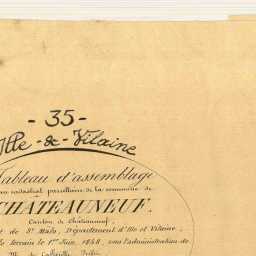 - 35 -
Ille - & - Vilaine
Tableau d'assemblage
cadastral parcellaire de la commune de
CHATEAUNEUF.
Canton de Chateauneuf,
de St Malo, Département d'Ille et Vilaine,
le terrain le 1er Juin, 1848, sous l'administration de
M. de